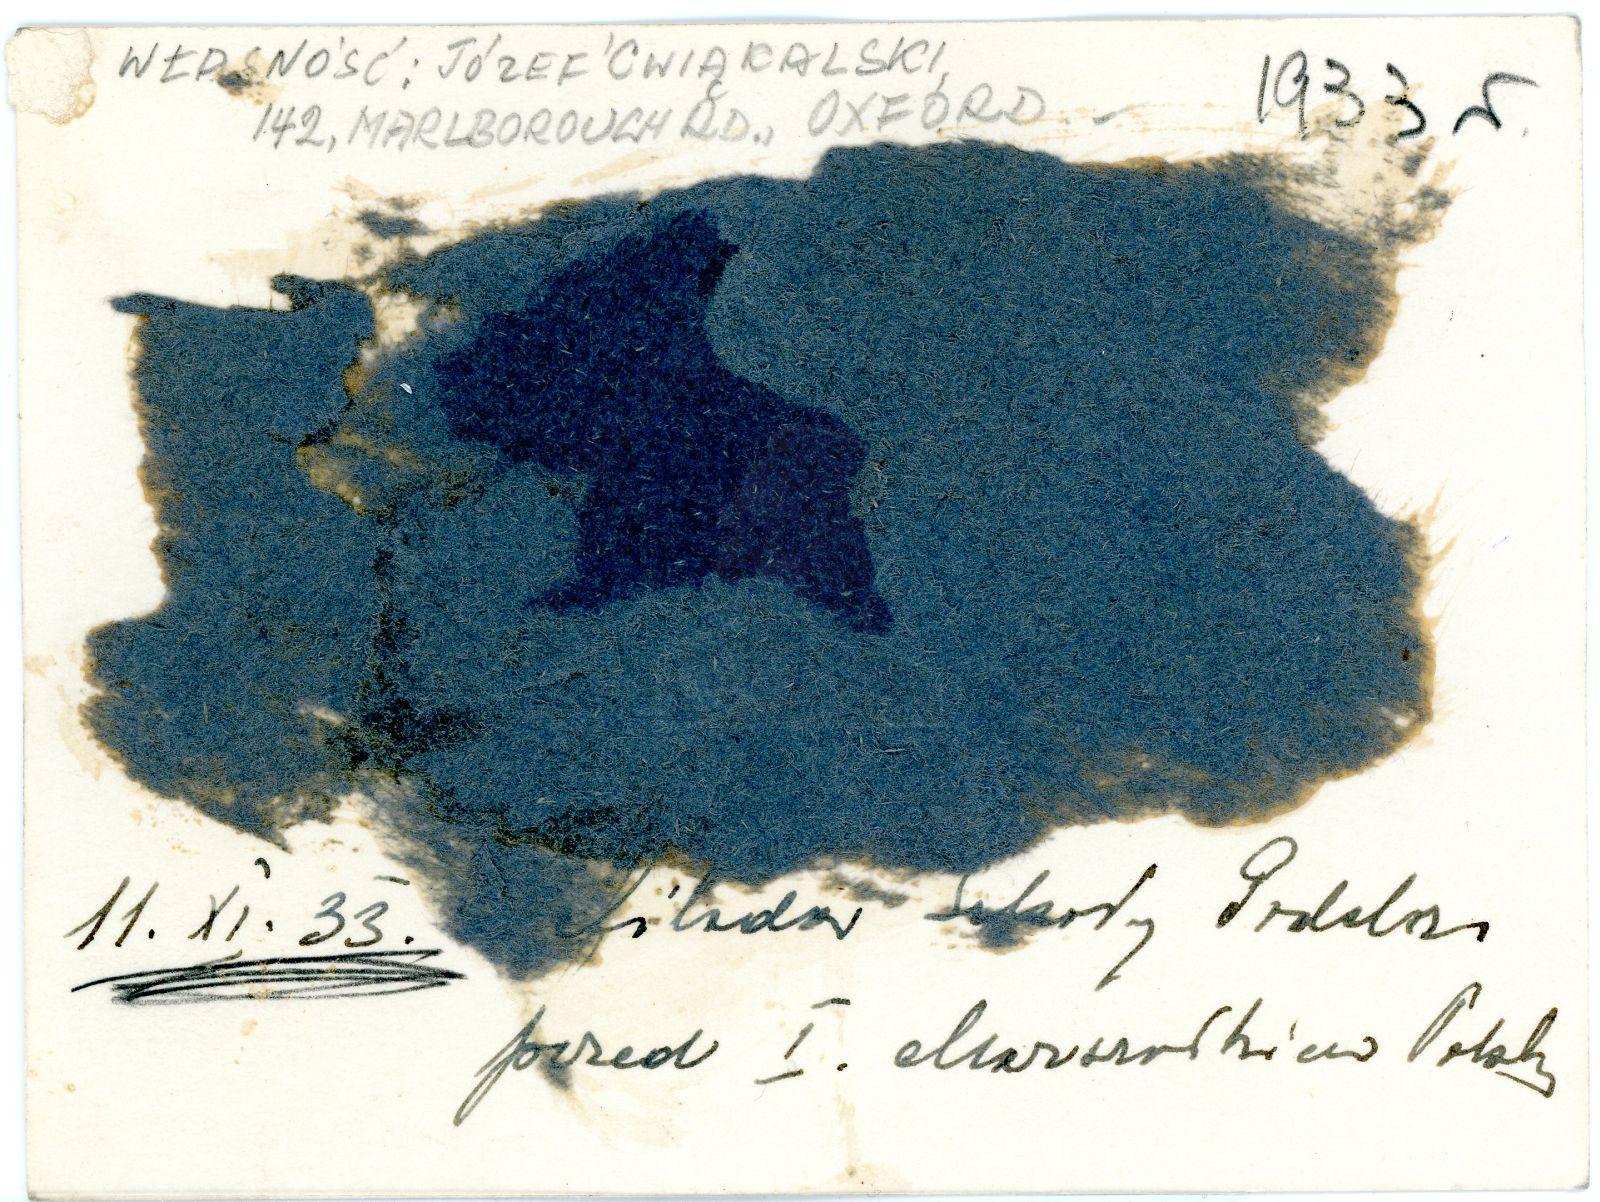 WŁASNOŚĆ: JÓZEF ĆWIĄKALSKI,
142, MARLBOROUGH RD., OXFORD. -
1933 r.
11. XI. 33. Defilada Szkoły Podchor.
przed I. Marszałkiem Polski